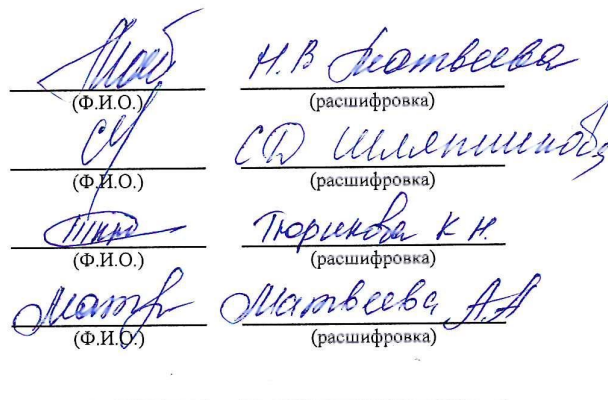 Н.В Матвеева
(Ф.И.О.) (расшифровка)
СД Шляпникова
(Ф.И.О.) (расшифровка)
Тюрикова К Н.
(Ф.И.О.) (расшифровка)
Матвеева А.А
(Ф.И.О.) (расшифровка)